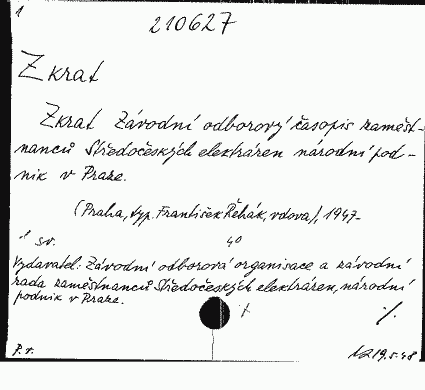 1
210627
Zkrat
Zkrat Závodní odborový časopis zaměst-
nanců Středočeských elektráren národní pod-
nik v Praze.
(Praha, typ. František Řehák, vdova), 1947-
sv. 4°
Vydavatel: Závodní odborová organisace a závodní
rada zaměstnanců Středočeských elektráren, národní
podnik v Praze.
./.
P. v. 19.5.48